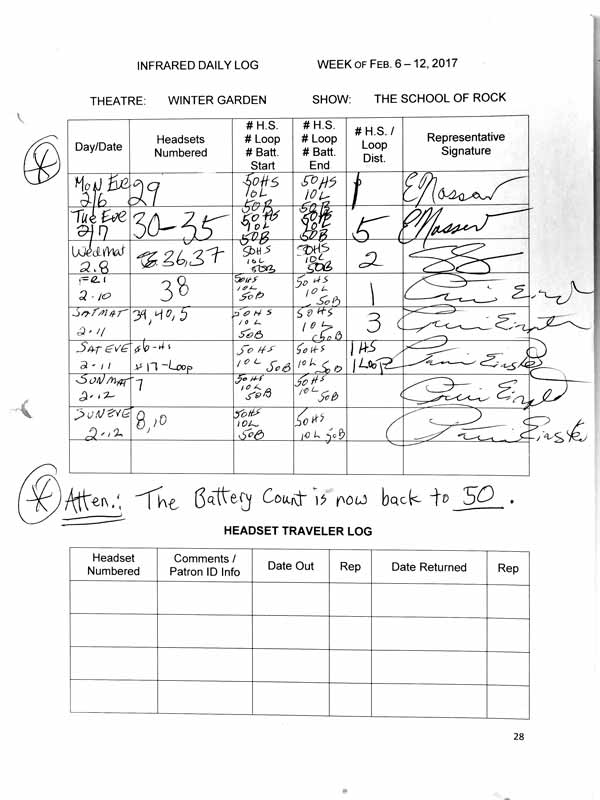 INFRARED DAILY LOG WEEK OF FEB. 6 – 12, 2017
THEATRE: WINTER GARDEN SHOW: THE SCHOOL OF ROCK
Day/Date Headsets Numbered # H.S. # Loop # Batt. Start # H.S. # Loop # Batt. End # H.S. / Loop Dist. Representative Signature
Mon Eve 2/6 29 50HS 10L 50B 50HS 10L 50B 1
Tue Eve 2/7 30-35 50HS 10L 50B 50HS 10L 50B 5
Wed Mat 2.8 36,37 50HS 10L 50B 50HS 10L 50B 2
FRI 2.10 38 50HS 10L 50B 50HS 10L 50B 1
SAT MAT 2.11 39,40,5 50HS 10L 50B 50HS 10L 50B 3
SAT EVE 2.11 #6-HS #17-Loop 50HS 10L 50B 50HS 10L 50B 1 HS 1 LOOP
SUN MAT 2.12 7 50HS 10L 50B 50HS 10L 50B
SUN EVE 2.12 8,10 50HS 10L 50B 50HS 10L 50B
* Atten.: The Battery Count is now back to 50.
HEADSET TRAVELER LOG
Headset Numbered Comments / Patron ID Info Date Out Rep Date Returned Rep
28